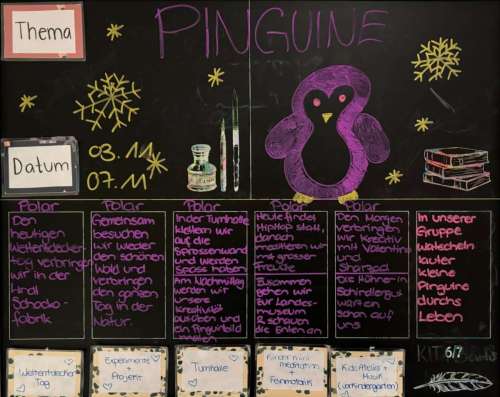 Thema
PINGUINE
Datum
03.11
07.11
Polar
Den
heutigen
Weltentdecker-
tag verbringen
wir in der
Lindt
Schoko-
fabrik
Polar
Gemeinsam
besuchen
wir wieder
den schönen
Wald und
verbringen
den ganzen
Tag in der
Natur.
Polar
In der Turnhalle
klettern wir
auf die
Sprossenwand
und werden
Spass haben
Am Nachmittag
werden wir
unsere
Kreativität
ausüben und
ein Pinguinbild
Polar
Heute findet
HipHop statt,
danach
kreattieren wir
mit grosser
Freude
Zusammen
gehen wir
zur Landes-
museum
& schauen
die Enten an
Polar
Den Morgen
verbringen
wir kreativ
mit Valentina
und
Die Hühner im
Schindlergut
warten
schon auf
uns
In unserer
Gruppe
watscheln
lauter
kleine
Pinguine
durchs
Leben
Weltentdecker
Tag
Experimente
+
Projekt
Turnhalle
Kinder mini
meditation
+
Feinmotorik
Kids Atelier +
Musik
(Vorkindergarten)
KITS 6/7